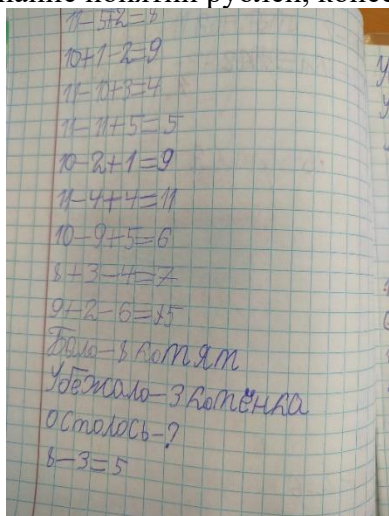 нание понятий рублей, копе
11-5+2=8
10+1-2=9
11-10+3=4
11-11+5=5
10-2+1=9
11-4+4=11
10-9+5=6
8+3-4=7
9+2-6=5
Было-8 котят
Убежало-3 котёнка
Осталось-?
8-3=5